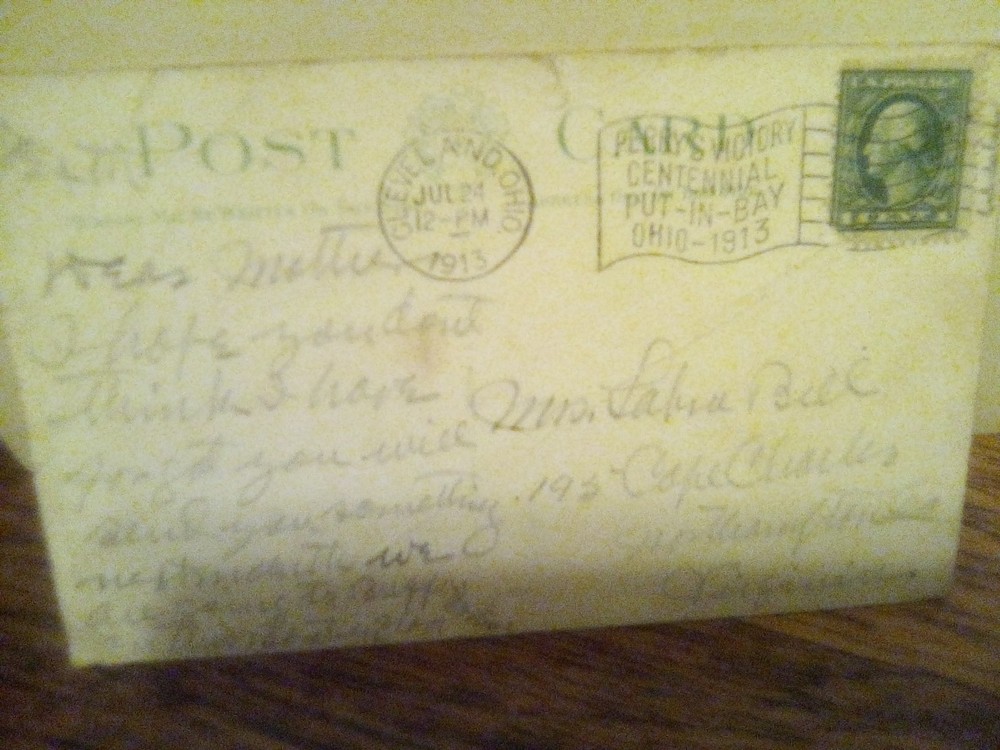 POST CARD
CLEVELAND, OHIO.
JUL 24
12-PM
1913
PERRY'S VICTORY
CENTENNIAL
PUT-IN-BAY
OHIO-1913
Dear Mother
I hope you dont
think I have
forgot you will
send you something
next month we
are to
Mrs. Sabra Bell
195 Cape Charles
Northampton
Virginia